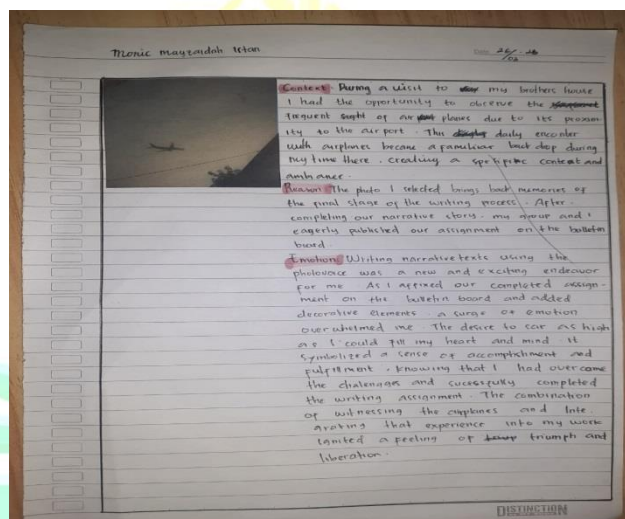 Monic mayzaidah Intan
Date 26/02-24
Context During a visit to my brothers house
I had the opportunity to observe the
frequent sight of air planes due to its proxim
ity to the air port. This daily enconter
with airplanes became a familiar back drop during
my time there. creating a specific context and
ambiance.
Reason The photo I selected brings back memories of
the final stage of the writing process. After
completing our narrative story. my group and I
eagerly published our assignment on the bulletin
board.
Emotion Writing narrative texts using the
photovoice was a new and exciting endeavor
for me. As I affixed our completed assign-
ment on the bulletin board and added
decorative elements. a surge of emotion
overwhelmed me. The desire to soar as high
as I could fill my heart and mind. it
symbolized a sense of accomplishment and
fulfillment. knowing that I had overcome
the chalenages and sucessfully completed
the writing assignment. The combination
of witnessing the airplanes and Inte.
grating that experience into my work
ignited a feeling of triumph and
liberation.
DISTINCTION